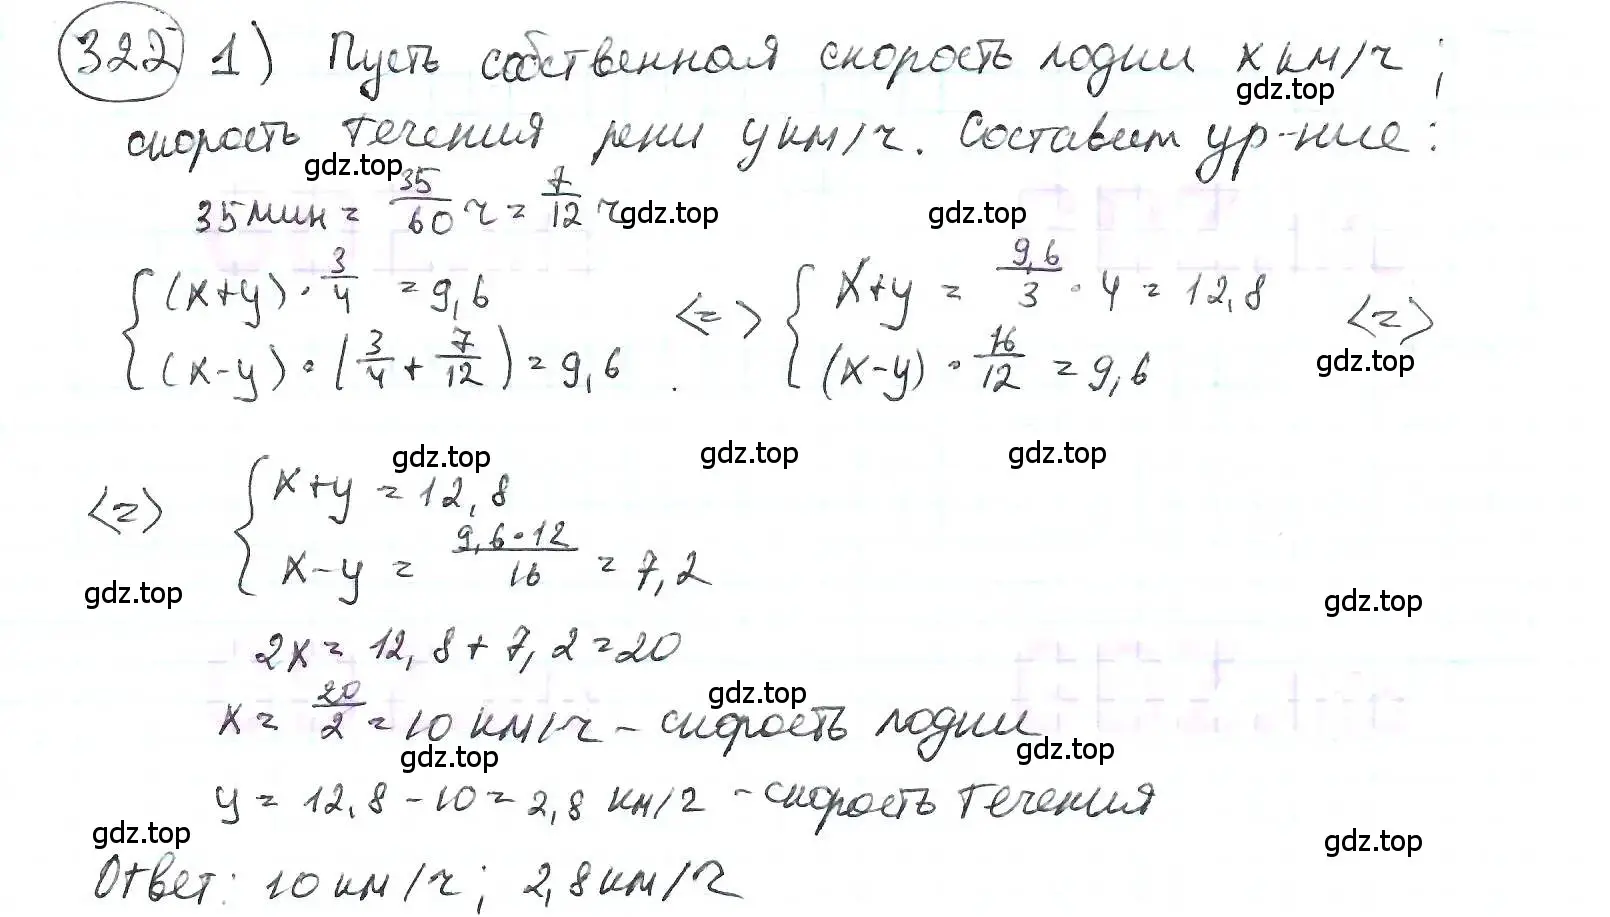 322 1) Пусть собственная скорость лодки x км/ч;
gdz.top
скорость течения реки y км/ч. Составим ур-ние:
gdz.top
35 мин = 35/60 ч = 7/12 ч
gdz.top gdz.top
{ (x+y) · 3/4 = 9,6 <=> { x+y = 9,6/3 · 4 = 12,8 <=>
{ (x-y) · (3/4 + 7/12) = 9,6 . { (x-y) · 16/12 = 9,6
gdz.top
gdz.top gdz.top gdz.top
<=> { x+y = 12,8
{ x-y = 9,6·12/16 = 7,2
gdz.top gdz.top
2x = 12,8 + 7,2 = 20
gdz.top
x = 20/2 = 10 км/ч - скорость лодки
gdz.top gdz.top
y = 12,8 - 10 = 2,8 км/ч - скорость течения
gdz.top gdz.top
Ответ: 10 км/ч; 2,8 км/ч